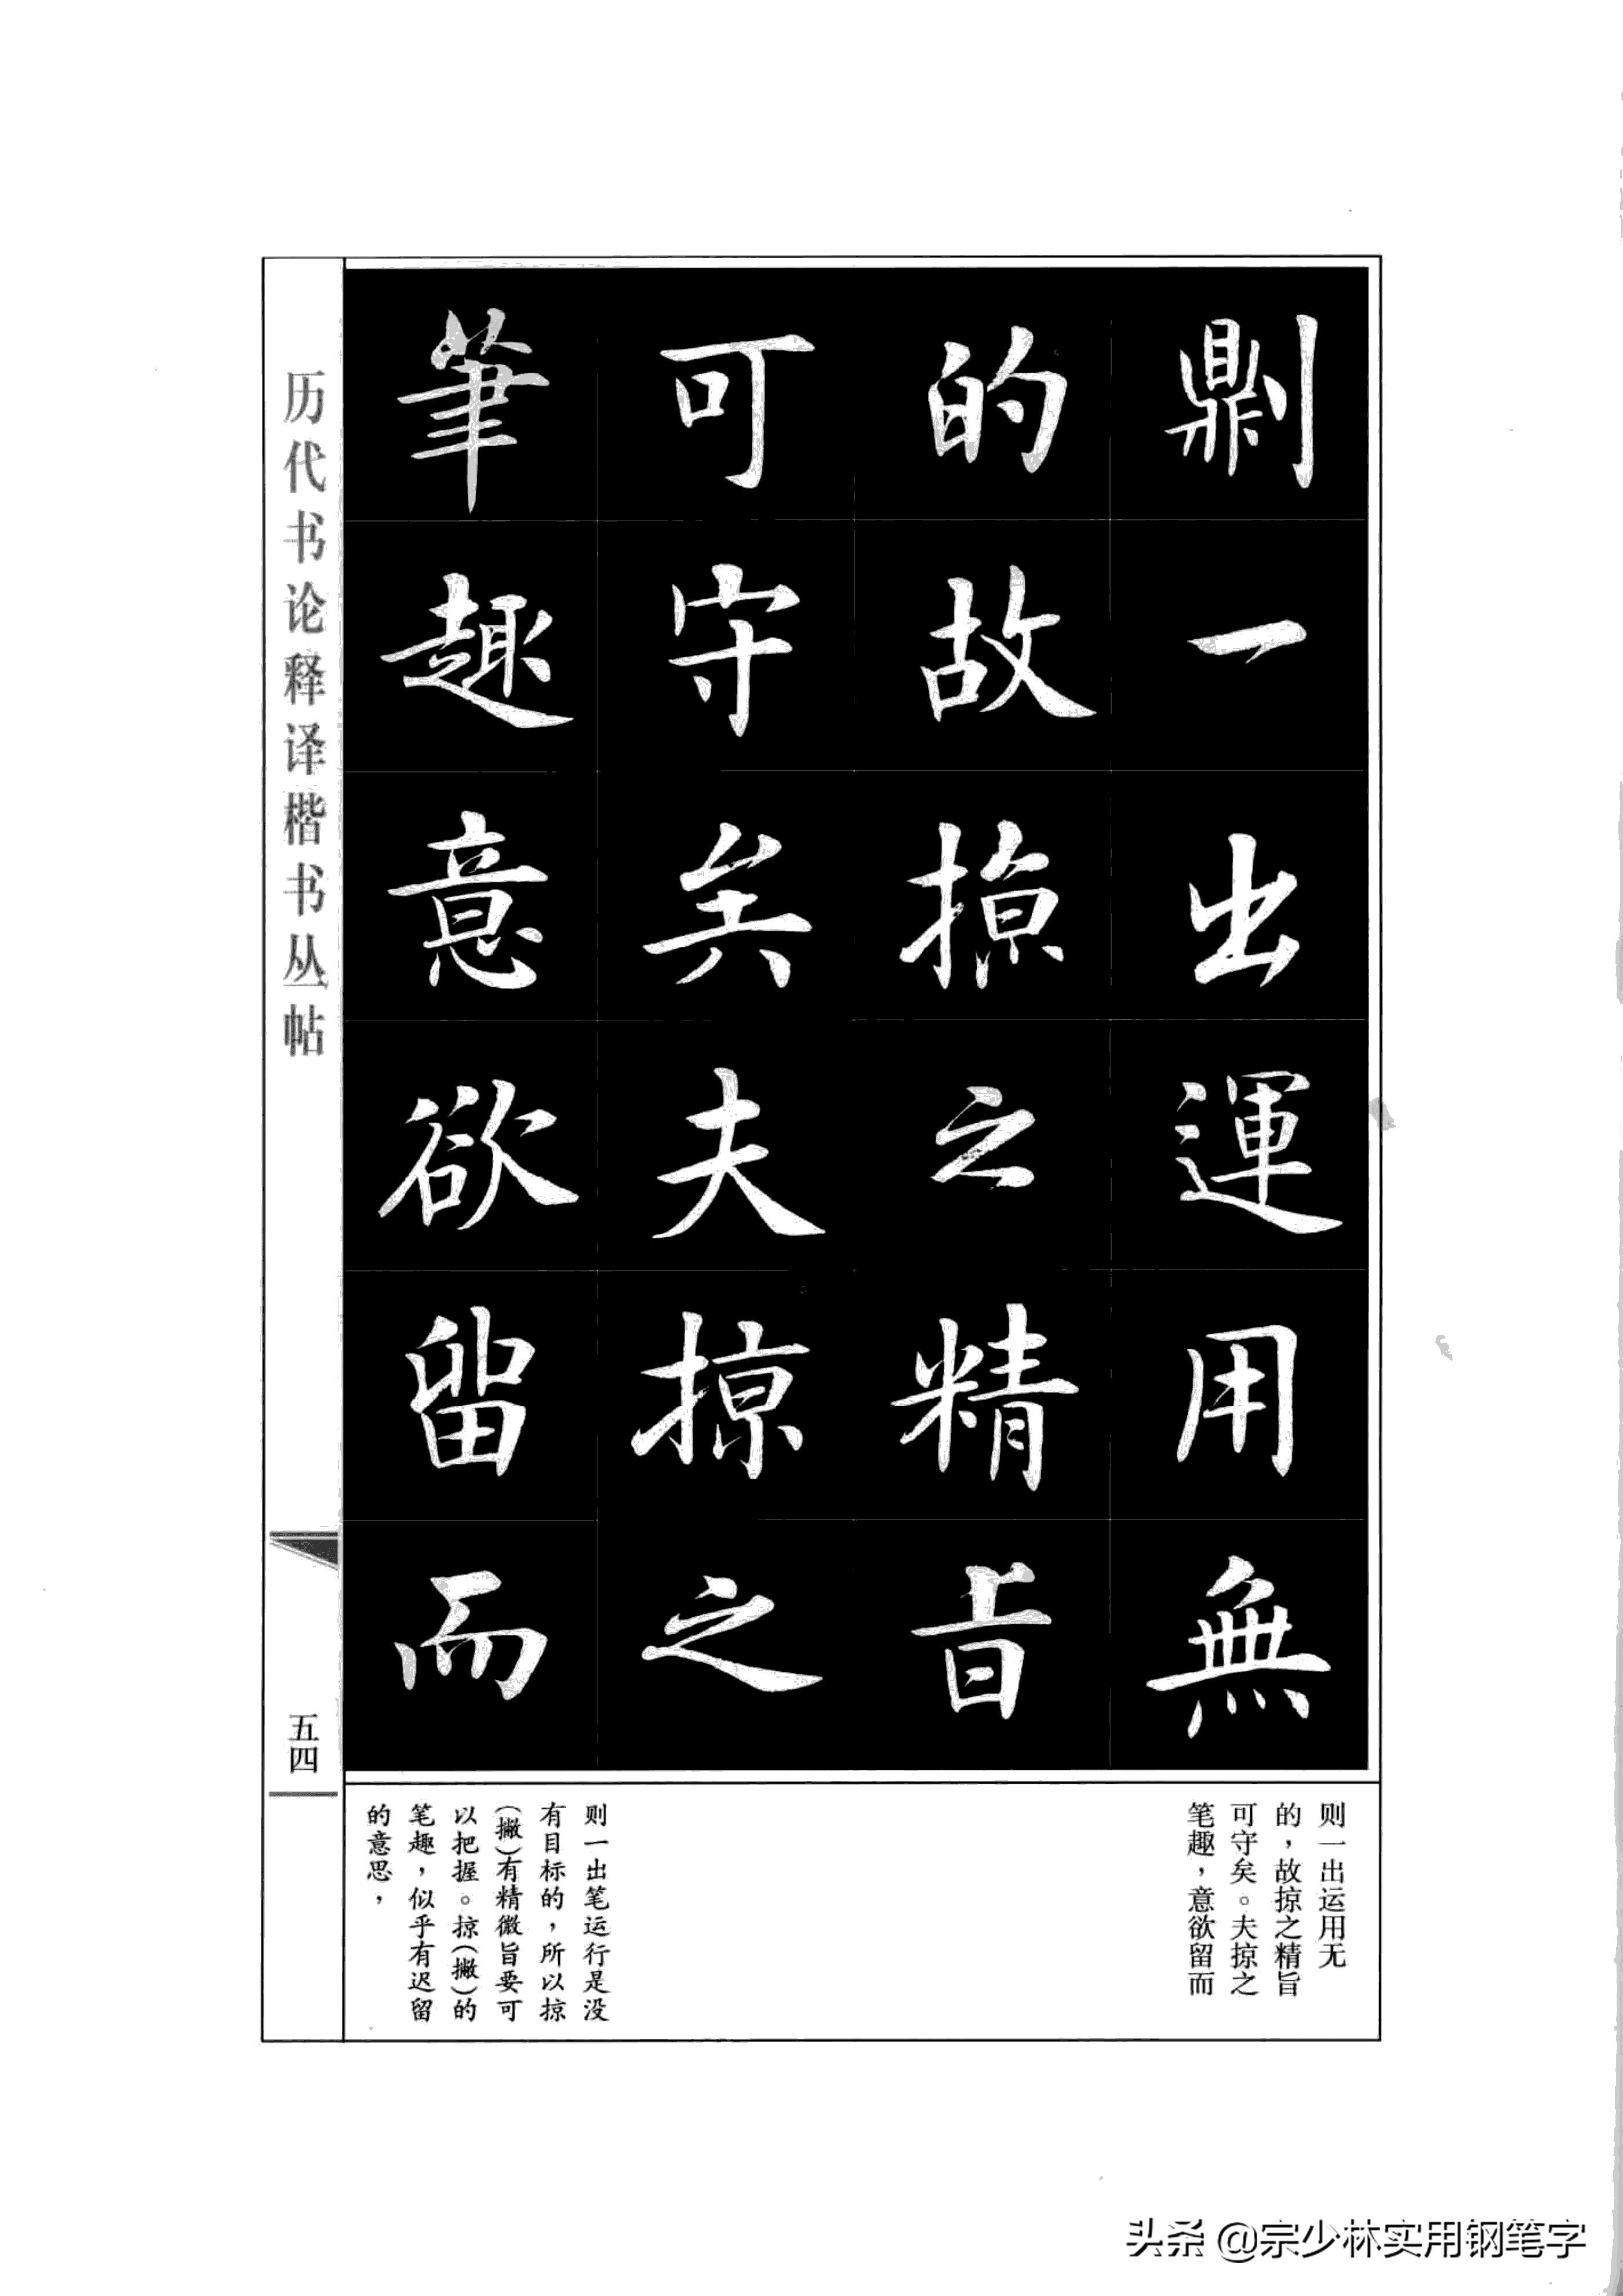 鼎刂一出運用無
的故掠之精旨
可守矣夫掠之
筆趣意欲留而
则一出运用无
的，故掠之精旨
可守矣。夫掠之
笔趣，意欲留而
则一出笔运行是没
有目标的，所以掠
（撇）有精微旨要可
以把握。掠（撇）的
笔趣，似乎有迟留
的意思，
历代书论释译楷书丛帖
五四
头条 @宗少林实用钢笔字